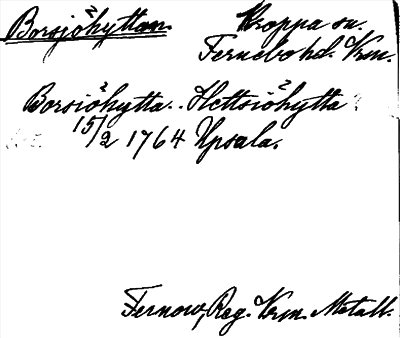 Borsjöhyttan. Kroppa sn.
Fernebo hd. Vrm.
Borsiöhytta.. Hettsiöhytta
15/2 1764 Upsala.
Fernow, Reg. Vrm. Metall.